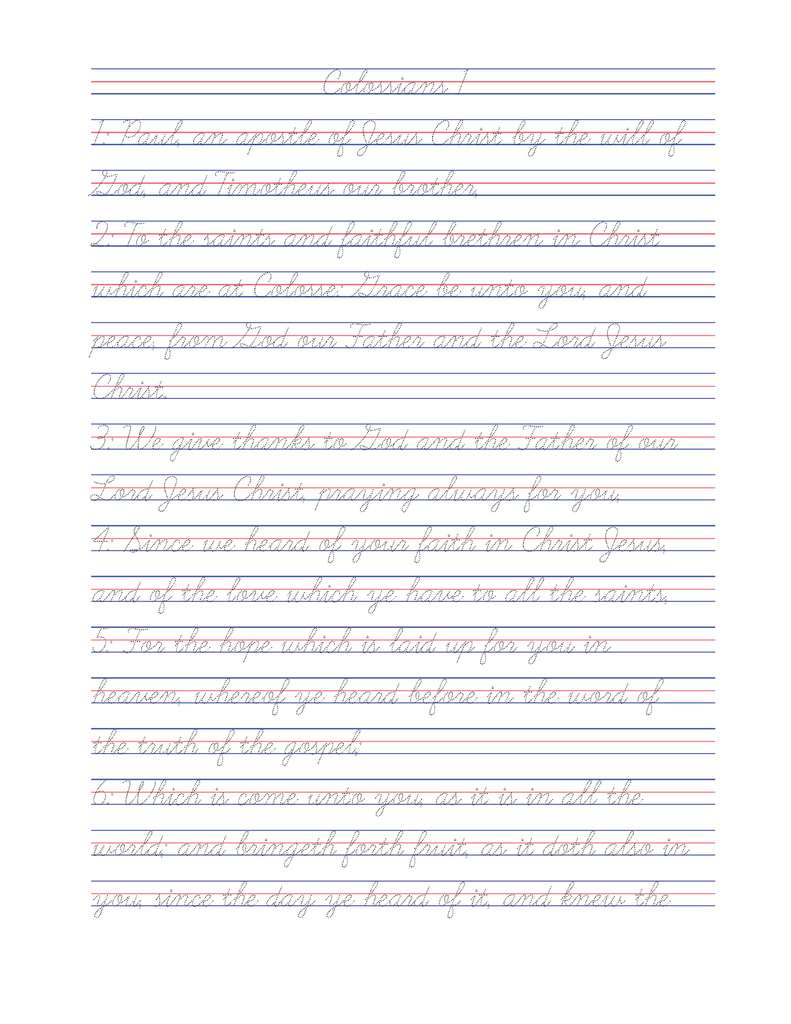 Colossians 1
1: Paul, an apostle of Jesus Christ by the will of
God, and Timotheus our brother,
2: To the saints and faithful brethren in Christ
which are at Colosse: Grace be unto you, and
peace, from God our Father and the Lord Jesus
Christ.
3: We give thanks to God and the Father of our
Lord Jesus Christ, praying always for you,
4: Since we heard of your faith in Christ Jesus,
and of the love which ye have to all the saints,
5: For the hope which is laid up for you in
heaven, whereof ye heard before in the word of
the truth of the gospel;
6: Which is come unto you, as it is in all the
world; and bringeth forth fruit, as it doth also in
you, since the day ye heard of it, and knew the